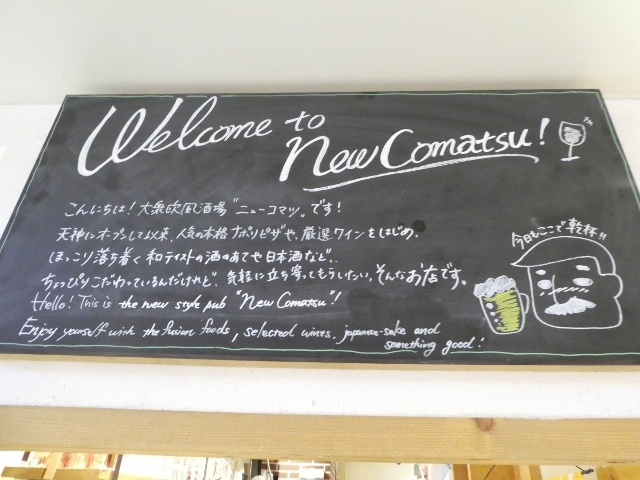 Welcome to
New Comatsu!
こんにちは!大衆欧風酒場"ニューコマツ"です!
天神にオープンして以来、人気の本格ナポリピザや、厳選ワインをはじめ、
ほっこり落ち着く和テイストの酒のあてや日本酒など、
ちょっぴりこだわっているんだけれど、気軽に立ち寄ってもらいたい、そんなお店です。
Hello! This is the new style pub "New Comatsu"!
Enjoy yourself with the fusion foods, selected wines, japanese-sake and
something good!
今日もここで乾杯!!